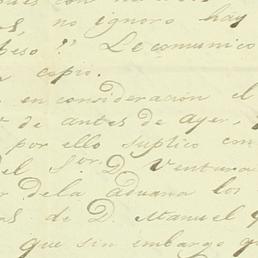 no ignoro hay
peso?" Le comunico
copio.
en consideracion el
de antes de ayer,
por ello suplico em
del S.or D. Ventura
de la Aduana los
de D. Manuel
que sin embargo q